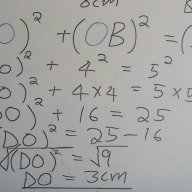 O)² + (OB)² = (
O)² + 4² = 5²
O)² + 4×4 = 5×5
DO)² + 16 = 25
(DO)² = 25-16
√(DO)² = √9
DO = 3cm